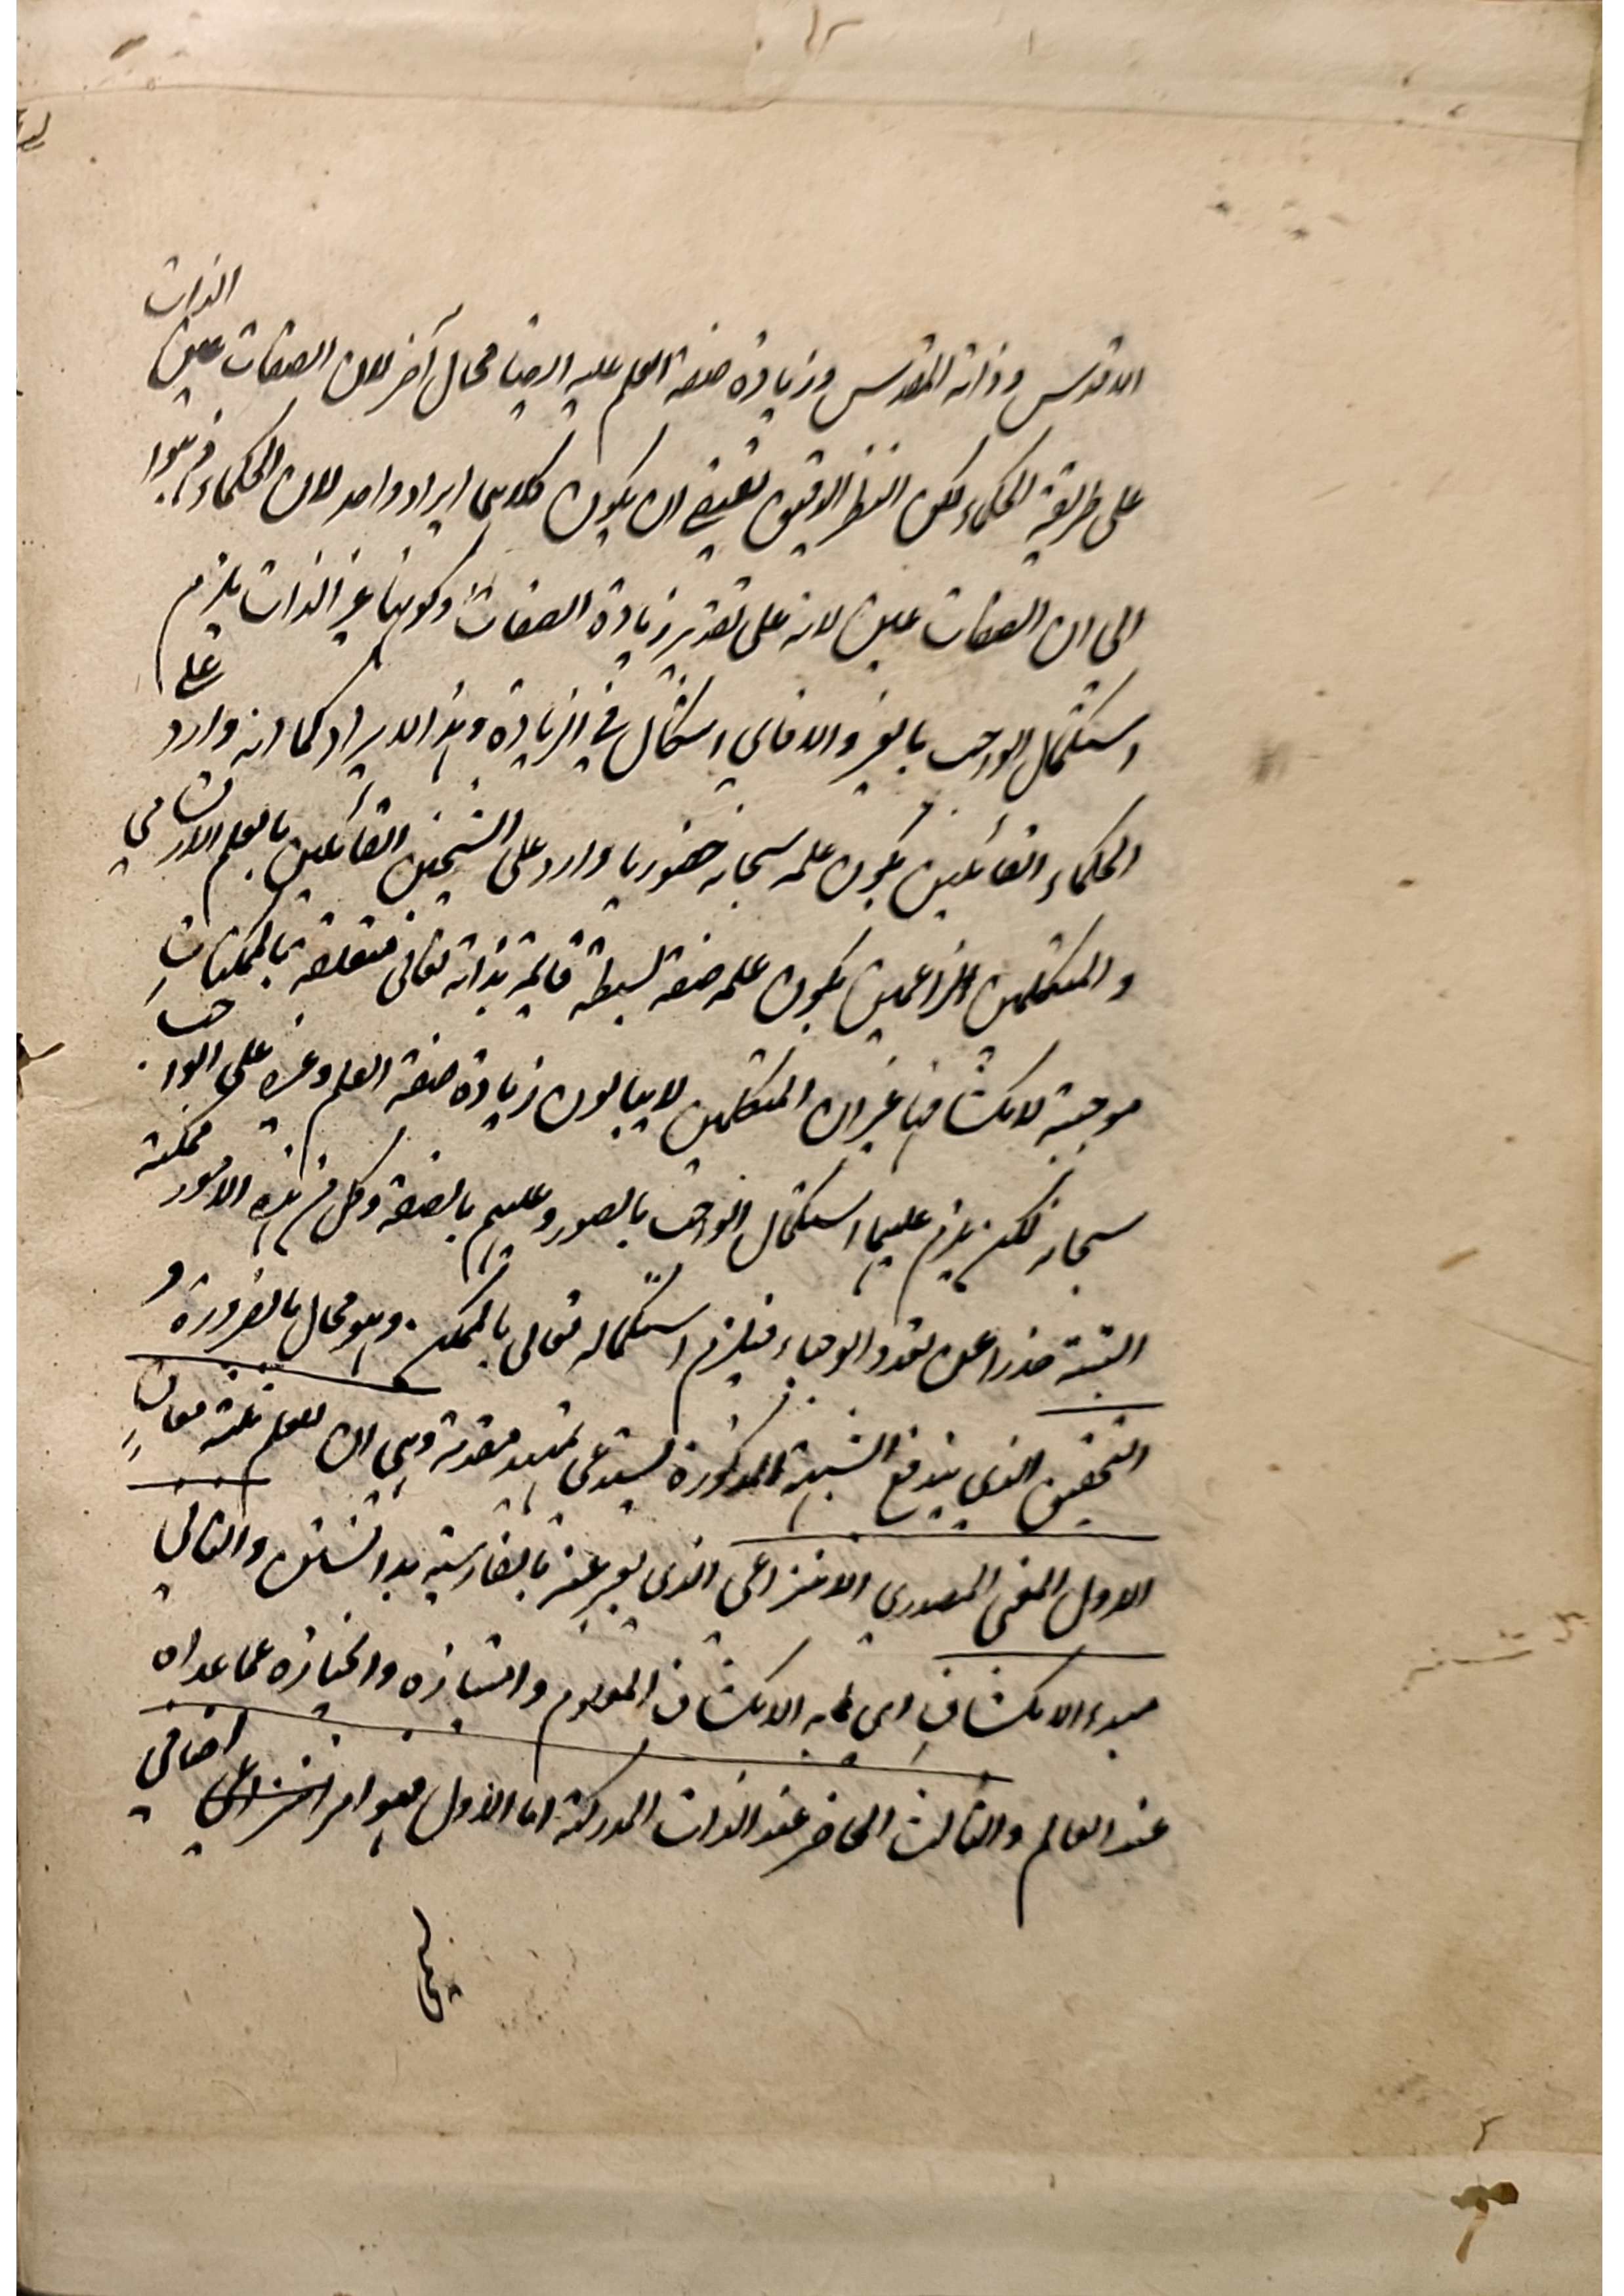 الاقدس وذاته المقدس وزيادة صفة العلم عليه ايضا محال آخر لان الصفات عين الذات
على طريقة الحكماء لكن النظر الدقيق يقتضي ان يكون كلاهما ايراد واحد لان الحكماء ذهبوا
الى ان الصفات عين لانه على تقدير زيادة الصفات وكونها غير الذات يلزم
استكمال الواجب بالغير والا فاي استحال في الزيادة وهذا الايراد كما انه وارد على
الحكماء القائلين بكون علمه سبحانه حضوريا وارد على الشيخين القائلين بالعلم الارتسامي
والمتكلمين الزاعمين بكون علمه صفة بسيطة قائمة بذاته تعالى متعلقة بالممكنات
موجبة لانكشافها غير ان المتكلمين لا يبالون زيادة صفة العلم وغيره على الواجب
سبحانه لكن يلزم عليهما استكمال الواجب بالصور وعليهم بالصفة وكل من هذه الامور ممكنة
البتة حذرا عن تعدد الوجباء فيلزم استكماله تعالى بالممكن وهو محال بالضرورة و
التحقيق الذي يندفع الشبهة المذكورة يستدعي تمهيد مقدمة وهي ان للعلم ثلثة معان
الاول المعنى المصدري الانتزاعي الذي يعبر عنه بالفارسية بدانستن والثاني
مبدء الانكشاف اي ما به الانكشاف المعلوم وامتيازه وانحيازه عما عداه
عند العالم والثالث الحاضر عند الذات المدركة اما الاول فهو امر انتزاعي اضافي